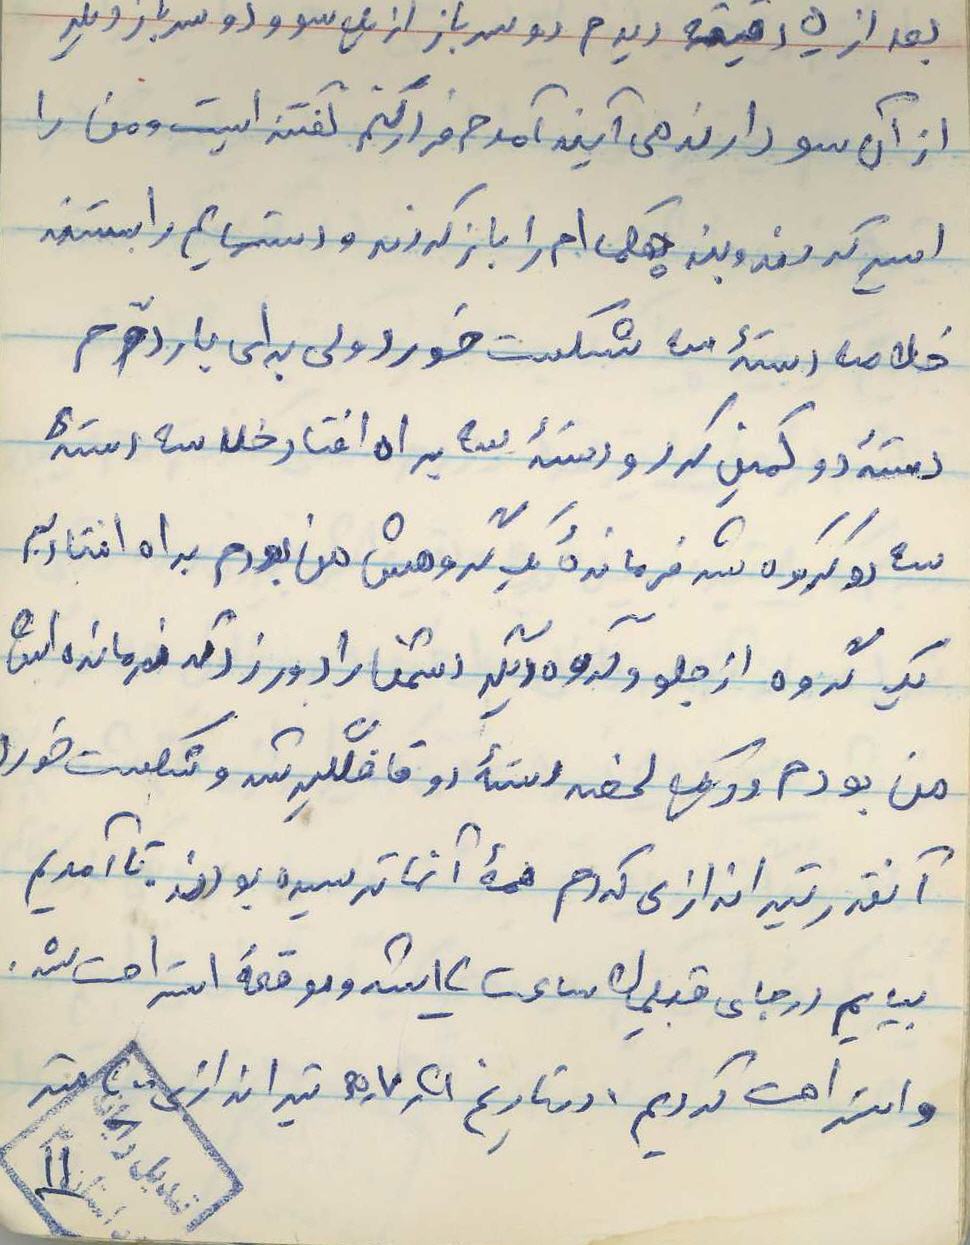 بعد از ۵ دقیقه دیدم دو سرباز از یک سو و دو سرباز دیگر
از آن سو دارند می آیند آمدم فرار کنم گفتند ایست و من را
اسیر کردند و بند چکمه ام را باز کردند و دستهایم را بستند
خلاصه دستهٔ سه شکست خورد ولی برای بار دوم
دستهٔ دو کمین کرد و دستهٔ سه براه افتاد خلاصه دستهٔ
سه دو گروه شد فرماندهٔ یک گروهش من بودم براه افتادیم
یک گروه از جلو و گروه دیگر دشمن را دور زد که فرمانده اش
من بودم و در یک لحظه دستهٔ دو غافلگیر شد و شکست خورد
آنقدر تیراندازی کردم همهٔ آنها ترسیده بودند. تا آمدیم
بیایم در جای قبلیمان ساعت شد و موقعهٔ استراحت شد.
و استراحت کردیم. در تاریخ تیراندازی
تبدیل
استان
۱۱